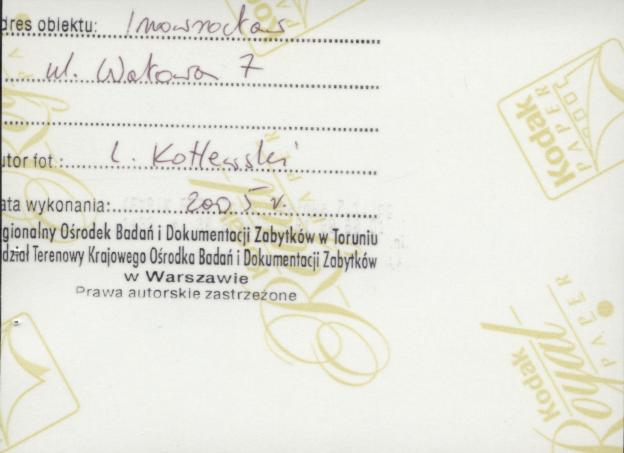 dres obiektu: Inowrocław
ul. Wałowa 7
utor fot.: L. Kotlewski
ata wykonania: 2005 r.
gionalny Ośrodek Badań i Dokumentacji Zabytków w Toruniu
dział Terenowy Krajowego Ośrodka Badań i Dokumentacji Zabytków
w Warszawie
Prawa autorskie zastrzeżone
Kodak
PAPER
Kodak
Royal
PAPER
Royal